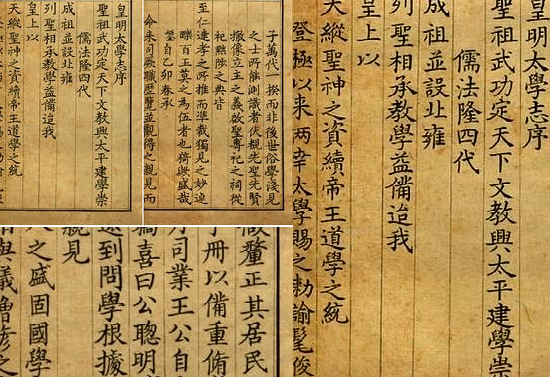 皇明太學志序
聖祖武功定天下文教興太平建學崇
儒法隆四代
成祖並設北雍
列聖相承教學益備迨我
皇上以
天縱聖神之資續帝王道學之統
子萬代一揆而非後世俗學淺見
之士所能測識者伏覩先聖先賢
撤像立主之義啟聖專祀之祠從
祀黜陟之典皆
至仁達孝之所推而準裁獨見之妙逺
百王莫之為伍者也猗歟盛哉
自乙卯春承
命来司厥職歴覽並觀得之親見而
皇明太學志序
聖祖武功定天下文教興太平建學崇
儒法隆四代
成祖並設北雍
列聖相承教學益備迨我
皇上以
天縱聖神之資續帝王道學之統
登極以来两幸太學賜之勅諭髦俊
釐正其居民
冊以備重脩
司業王公自
喜曰公聰明
到問學根據
親見
之盛固國學
與義魯彦之